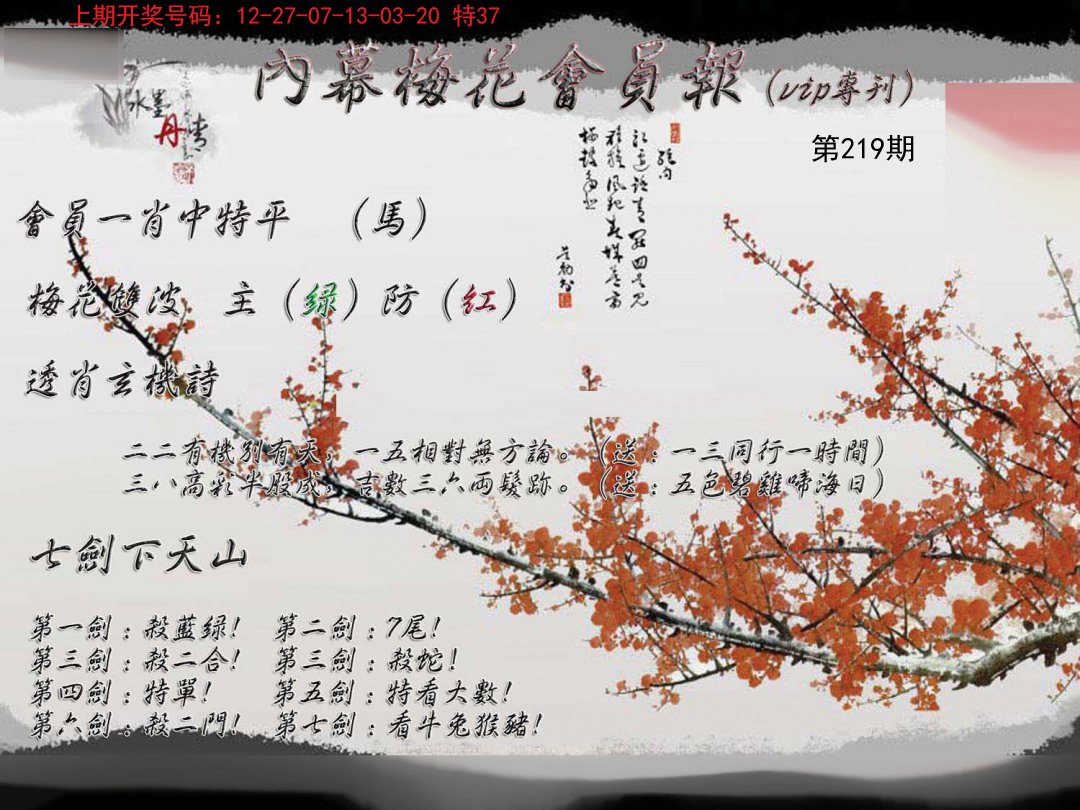 上期开奖号码：12-27-07-13-03-20 特37
內幕梅花會員報（vip專刊）
水墨
丹青
第219期
會員一肖中特平 （馬）
梅花雙波 主（绿）防（红）
透肖玄機詩
二二有機別有天，一五相對無方論。（送：一三同行一時間）
三八高彩半股成，吉數三六両髮跡。（送：五色碧雞啼海日）
七劍下天山
第一劍：殺藍绿！ 第二劍：7尾！
第三劍：殺二合！ 第三劍：殺蛇！
第四劍：特單！ 第五劍：特看大數！
第六劍：殺二門！ 第七劍：看牛兔猴豬！